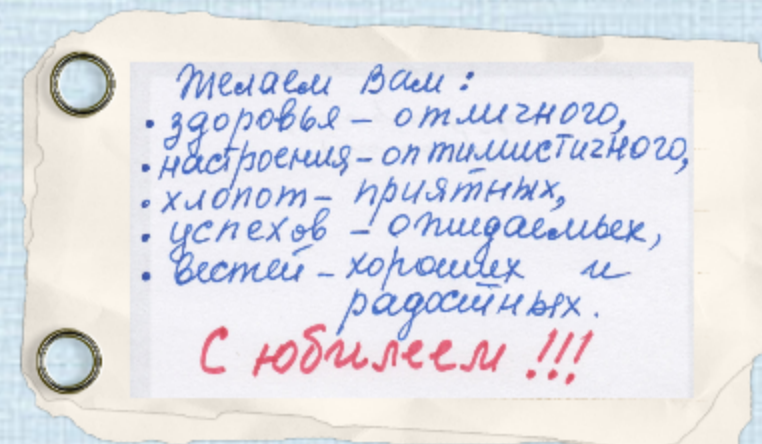 Желаем Вам:
• здоровья – отличного,
• настроения – оптимистичного,
• хлопот – приятных,
• успехов – ожидаемых,
• вестей – хороших и
радостных.
С юбилеем!!!